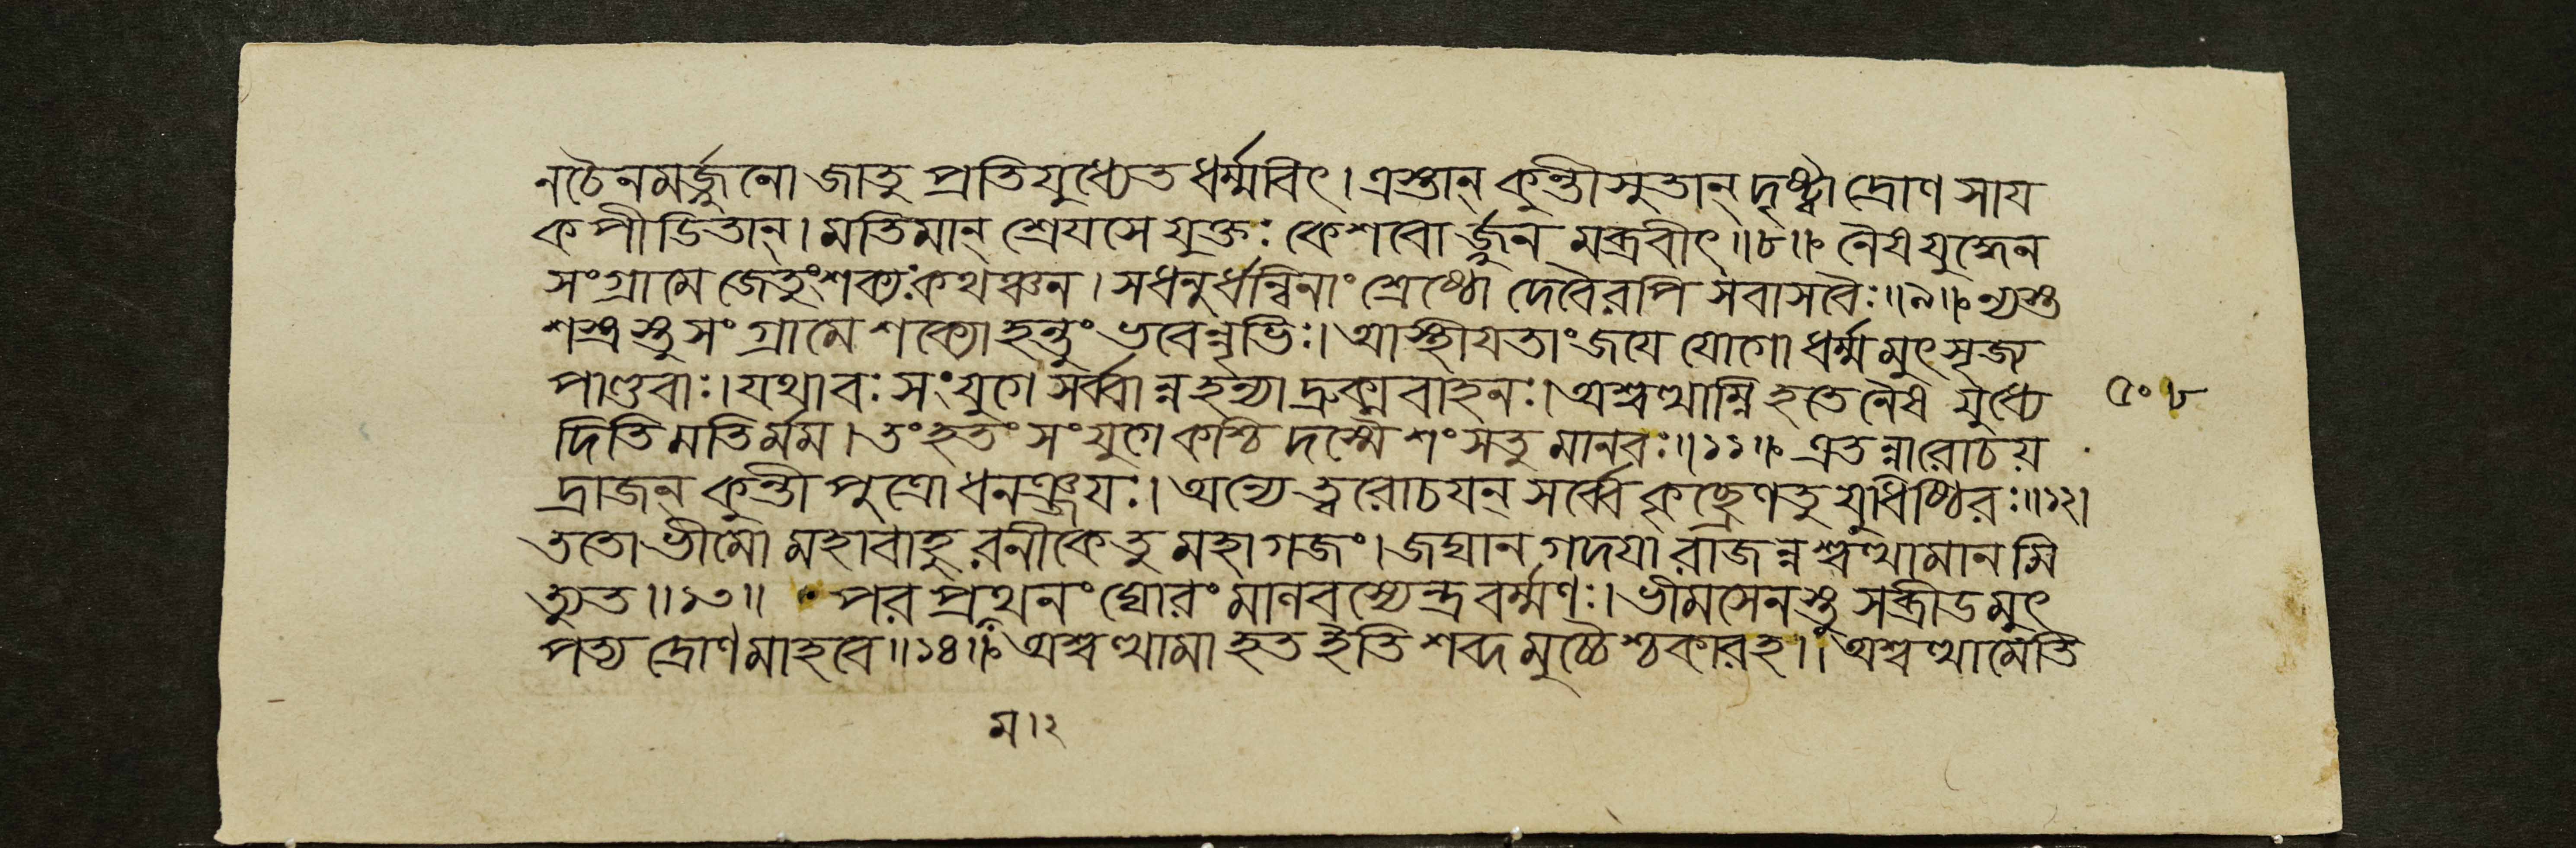 নচৈনমর্জ্জুনো জাতু প্রতিযুধ্যেত ধর্ম্মবিৎ। এস্তান্ কুন্তীসুতান্ দৃষ্ট্বা দ্রোণ সায
ক পীডিতান্। মতিমান্ শ্রেযসে যুক্তঃ কেশবো র্জ্জুন মব্রবীৎ॥৮॥ নৈষ যুদ্ধেন
সংগ্রামে জেতুং শক্যঃ কথঞ্চন। সধনুর্ধন্বিনাং শ্রেষ্ঠো দেবৈরপি সবাসবৈঃ॥৯॥ ন্যস্ত
শস্ত্রস্তু সংগ্রামে শক্যো হন্তুং ভবেন্নৃভিঃ। আস্থীযতাং জযে যোগো ধর্ম্ম মুৎসৃজ্য
পাণ্ডবাঃ। যথাবঃ সংযুগে সর্ব্বান্ন হন্যা দ্রুক্মবাহনঃ। অশ্বত্থাম্নি হতে নৈষ যুধ্যে
দিতি মতির্মম। তং হতং সংযুগে কশ্চি দস্মৈ শংসতু মানবঃ॥১১॥ এতন্নারোচয়
দ্রাজন্ কুন্তী পুত্রো ধনঞ্জযঃ। অন্যে ত্বরোচযন্ সর্ব্বে কৃচ্ছ্রেণতু যুধিষ্ঠিরঃ॥১২।
ততো ভীমো মহাবাহু রনীকেতু মহাগজং। জঘান গদযা রাজন্নশ্বত্থামান মি
ত্যুত॥১৩॥ পরপ্রমথনং ঘোরং মাণবস্যেন্দ্রবর্ম্মণঃ। ভীমসেনস্তু সব্রীডমুৎ
পত্য দ্রোণমাহবে॥১৪॥ অশ্বত্থামা হত ইতি শব্দ মুচ্চৈশ্চকারহ। অশ্বত্থামেতি
ম।২